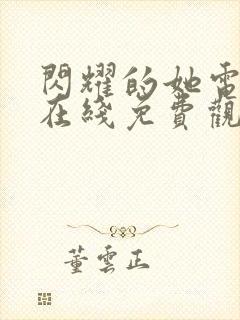 閃耀的她電
在綫免費觀
董雲正